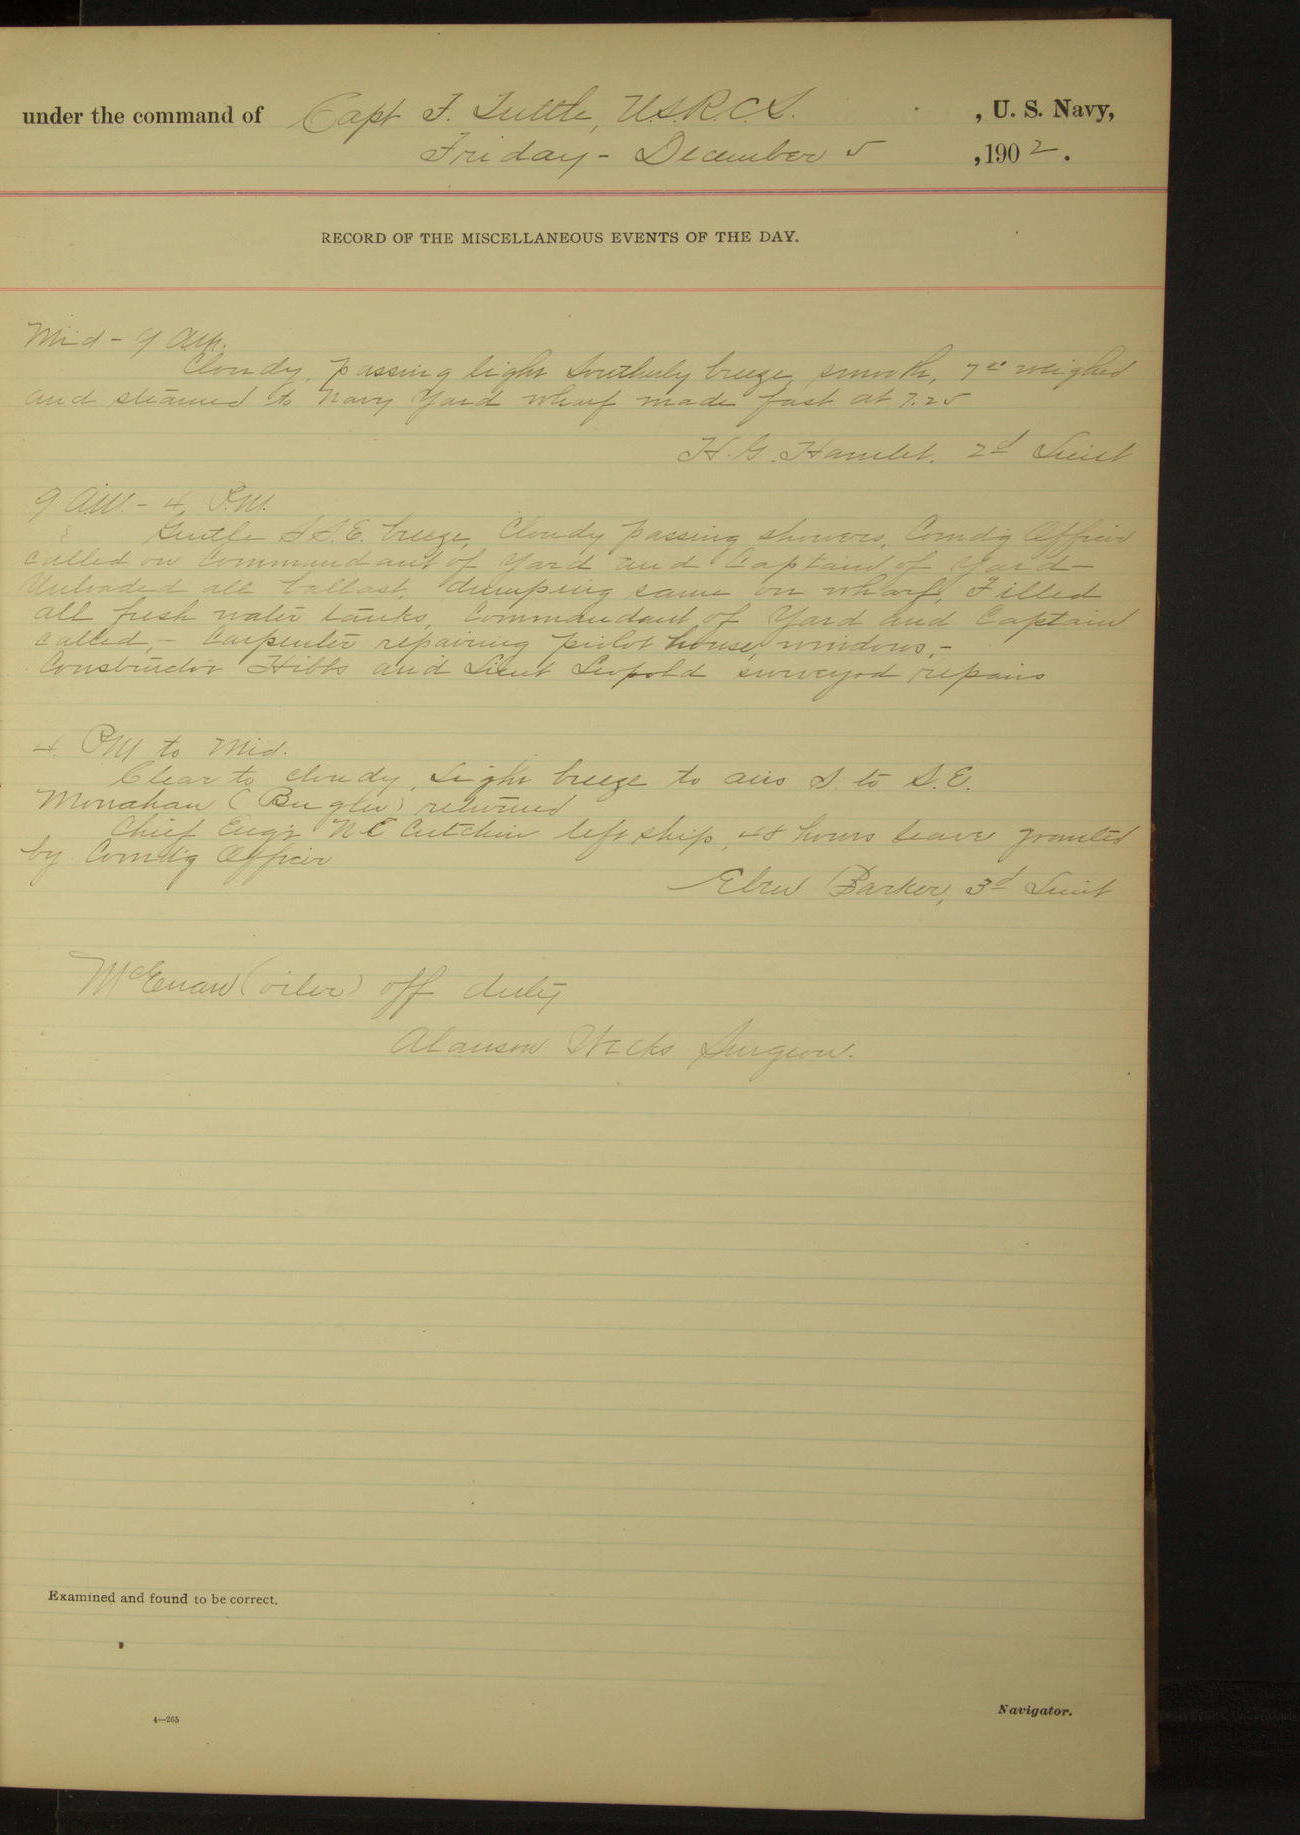 under the command of Capt F. Tuttle, U.S.R.C.S. , U. S. Navy,
Friday - December 5 , 1902.
RECORD OF THE MISCELLANEOUS EVENTS OF THE DAY.
Mid - 9 AM.
Cloudy, passing light Southerly breeze, smooth, 7 00 weighed
and steamed to Navy Yard wharf made fast at 7.25
H. G. Hamlet. 2d Lieut
9 A.M. - 4 P.M.
Gentle S.S.E. breeze, Cloudy passing showers, Comdg Officer
called on Commandant of Yard and Captain of Yard -
Unloaded all ballast, dumping same on wharf, Filled
all fresh water tanks, Commandant of Yard and Captain
called, - Carpenter repairing pilot house, windows. -
Constructor Hibbs and Lieut Leopold surveyed repairs
4 PM to Mid.
Clear to cloudy, Light breeze to airs S. to S.E.
Monahan (Bugler) returned
Chief Eng'r N E Cutchin left ship, 48 hours leave granted
by Comd'g Officer
Eben Barker, 3d Lieut
McEnan (oiler) off duty
Alanson Weeks Surgeon.
Examined and found to be correct.
4—265
Navigator.